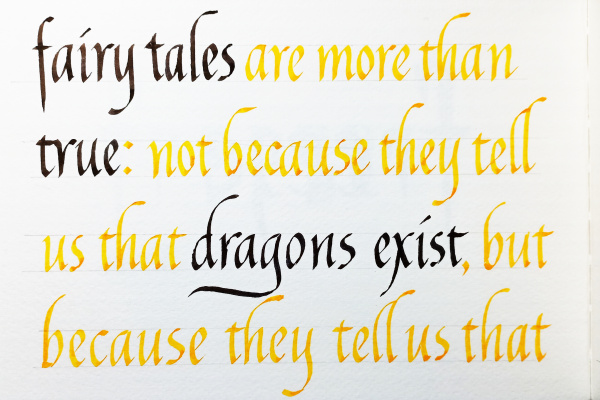 fairy tales are more than
true: not because they tell
us that dragons exist, but
because they tell us that